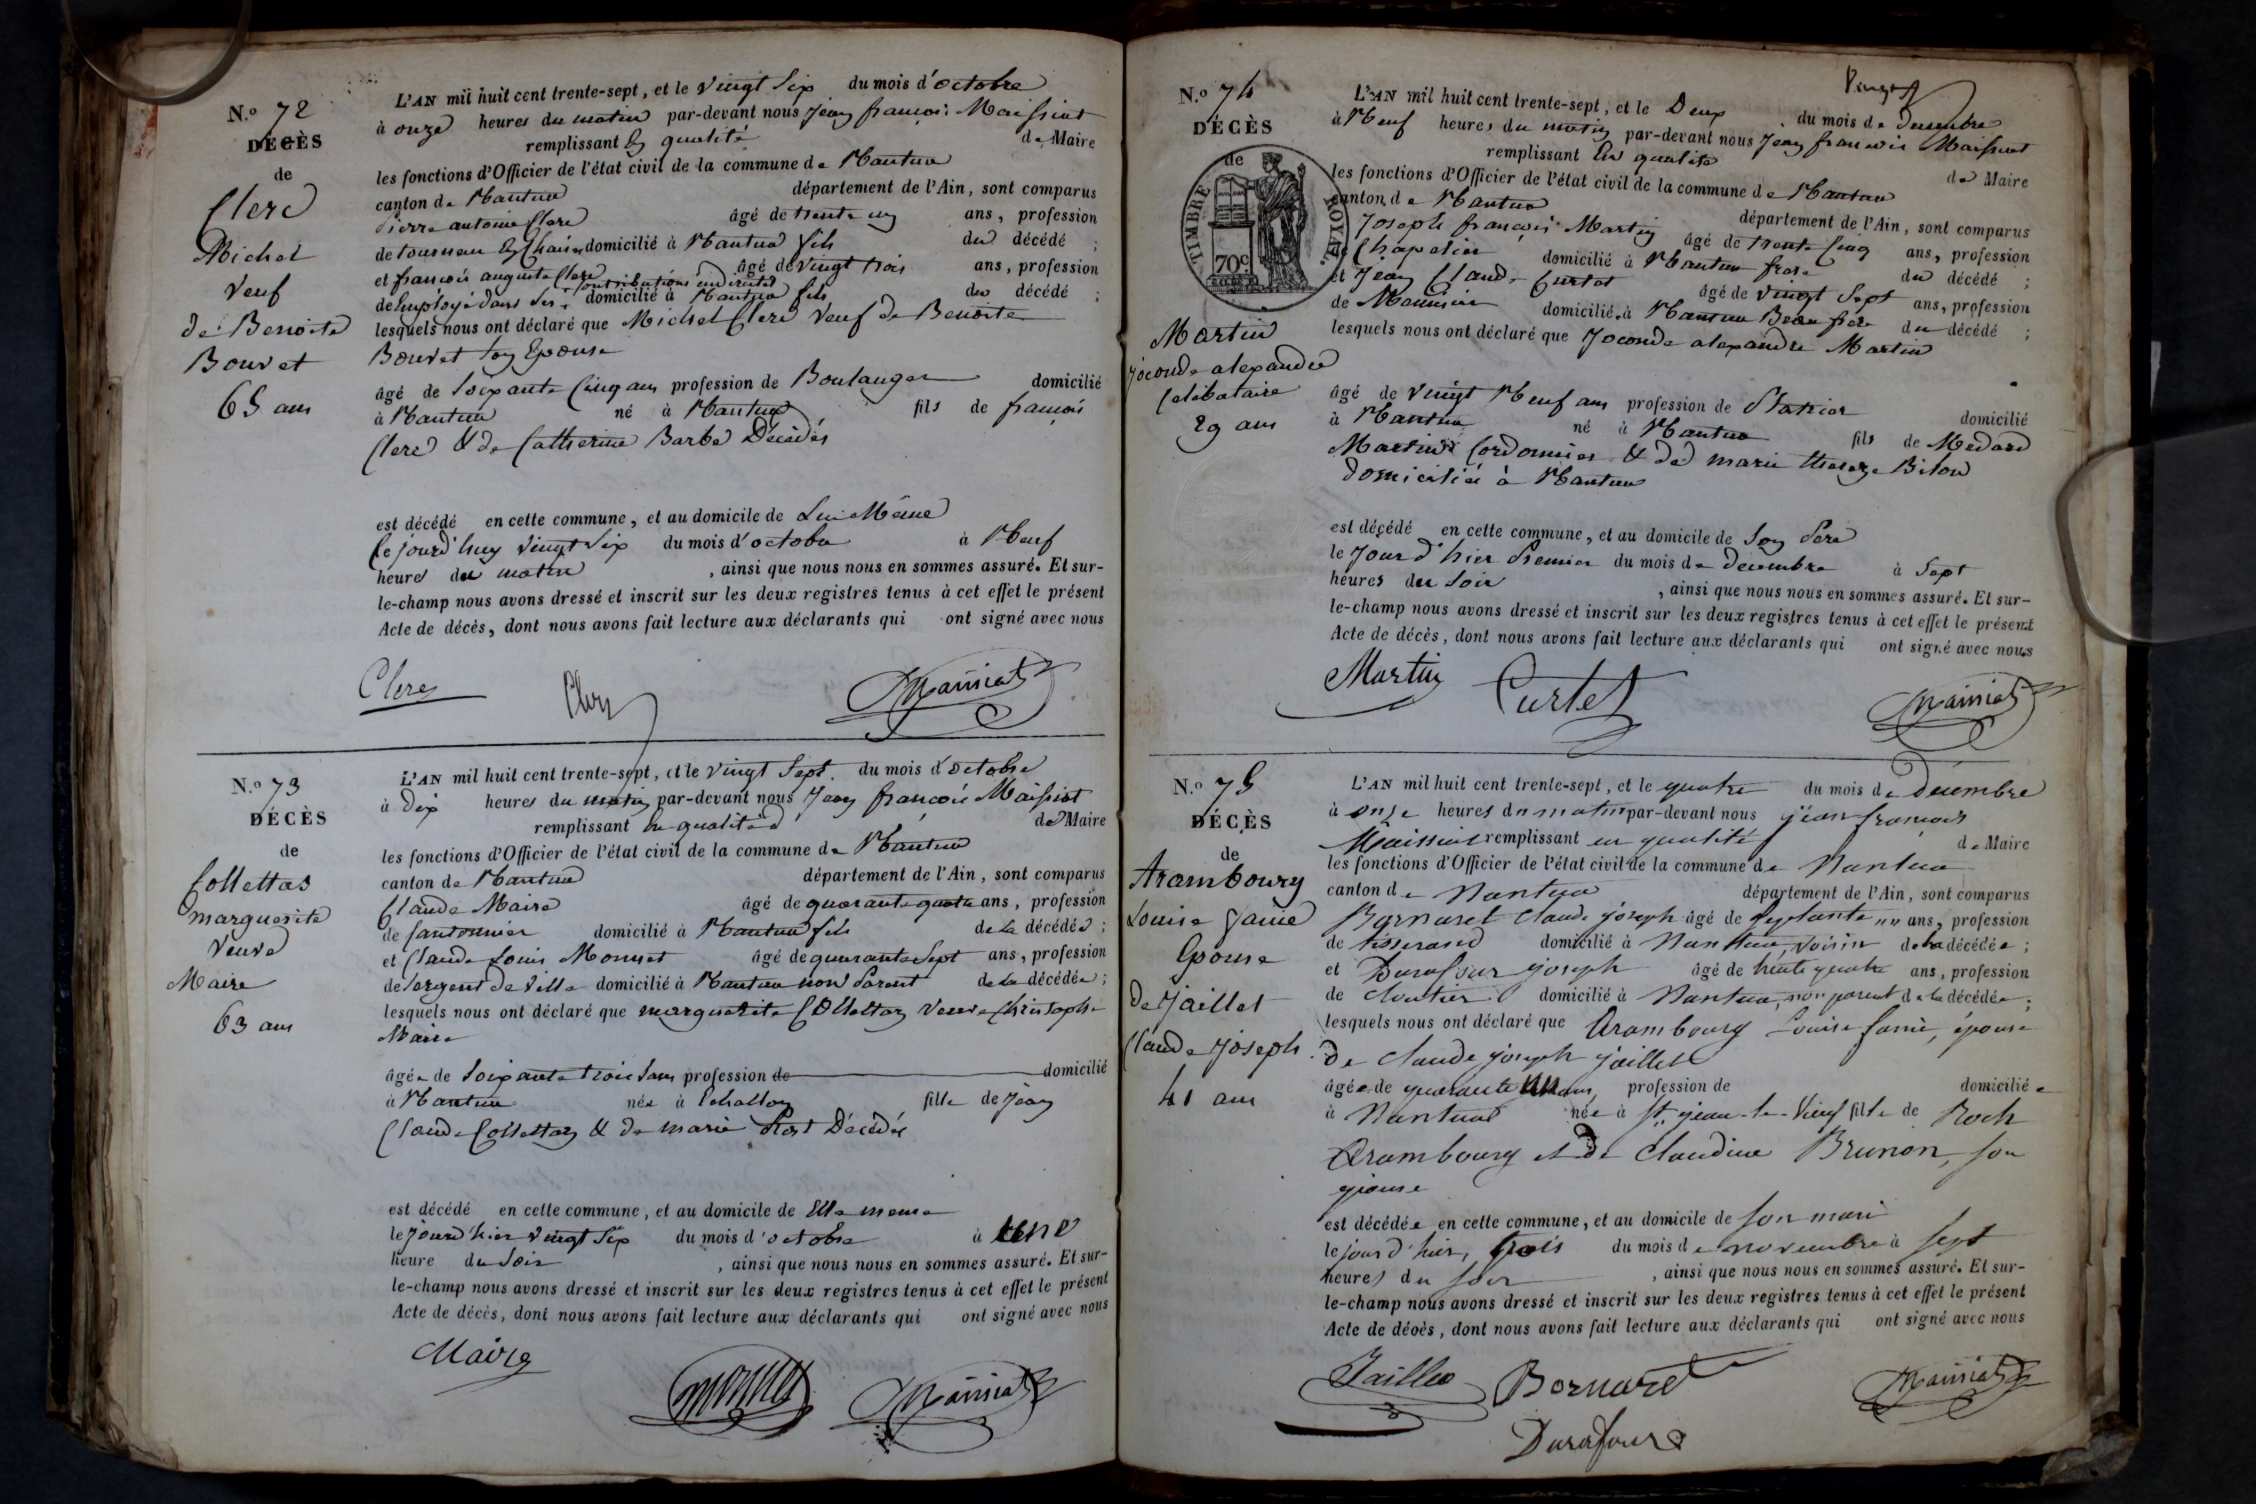 N.o 72
DÉCÈS
de
Clerc
Michel
Veuf
de Benoite
Bouvet
65 ans
L'AN mil huit cent trente-sept, et le vingt Six du mois d'octobre
à onze heures du matin par-devant nous Jean françois Maissiat
remplissant En qualité de Maire
les fonctions d'Officier de l'état civil de la commune de Nantua
canton de Nantua département de l'Ain, sont comparus
Pierre antoine Clerc âgé de trente un ans, profession
de tourneur En Chaises domicilié à Nantua fils du décédé ;
et françois auguste Clerc âgé de vingt trois ans, profession
de Employé dans les contributions indirectes domicilié à Nantua fils du décédé ;
lesquels nous ont déclaré que Michel Clerc Veuf de Benoite
Bouvet Son Epouse
âgé de Soixante Cinq ans profession de Boulanger domicilié
à Nantua né à Nantua fils de françois
Clerc & de Catherine Barbe Décédés
est décédé en cette commune, et au domicile de Lui Même
le jourd'huy vingt Six du mois d'octobre à Neuf
heures du matin , ainsi que nous nous en sommes assuré. Et sur-
le-champ nous avons dressé et inscrit sur les deux registres tenus à cet effet le présent
Acte de décès, dont nous avons fait lecture aux déclarants qui ont signé avec nous
Clerc Clerc Maissiat
N.o 73
DÉCÈS
de
Collettaz
marguerite
Veuve
Maire
63 ans
L'AN mil huit cent trente-sept, et le vingt Sept du mois d'octobre
à Dix heures du matin par-devant nous Jean françois Maissiat
remplissant En qualité de Maire
les fonctions d'Officier de l'état civil de la commune de Nantua
canton de Nantua département de l'Ain, sont comparus
Claude Maire âgé de quarante quatre ans, profession
de Cantonnier domicilié à Nantua fils de la décédée ;
et Claude Louis Monnet âgé de quarante Sept ans, profession
de Sergent de Ville domicilié à Nantua non Parent de la décédée ;
lesquels nous ont déclaré que marguerite Collettaz Veuve Christophe
Maire
âgée de Soixante trois ans profession de domicilié
à Nantua née à Echallon fille de Jean
Claude Collettaz & de marie Post Décédés
est décédé en cette commune, et au domicile de Elle meme
le Jourd'hier vingt Six du mois d'octobre à une
heure du Soir , ainsi que nous nous en sommes assuré. Et sur-
le-champ nous avons dressé et inscrit sur les deux registres tenus à cet effet le présent
Acte de décès, dont nous avons fait lecture aux déclarants qui ont signé avec nous
Maire Monnet Maissiat
N.o 74
DÉCÈS
de
TIMBRE ROYAL.
70c
Martin
joconde alexandre
Celibataire
29 ans
L'AN mil huit cent trente-sept, et le Deux du mois de decembre
à Neuf heures du matin par-devant nous Jean francois Maissiat
remplissant En qualité de Maire
les fonctions d'Officier de l'état civil de la commune de Nantua
canton de Nantua département de l'Ain, sont comparus
Joseph françois Martin âgé de trente Cinq ans, profession
de Chapelier domicilié à Nantua frere du décédé ;
et Jean Claude Curtet âgé de vingt Sept ans, profession
de Menuisier domicilié à Nantua Beau frere du décédé ;
lesquels nous ont déclaré que Joconde alexandre Martin
âgé de vingt Neuf ans profession de Platrier domicilié
à Nantua né à Nantua fils de Medard
Martin Cordonnier & de marie thereze Bilon
domiciliés à Nantua
est décédé en cette commune, et au domicile de Son Pere
le Jour d'hier Premier du mois de Decembre à Sept
heures du Soir , ainsi que nous nous en sommes assuré. Et sur-
le-champ nous avons dressé et inscrit sur les deux registres tenus à cet effet le présent
Acte de décès, dont nous avons fait lecture aux déclarants qui ont signé avec nous
Martin Curtet Maissiat
N.o 75
DÉCÈS
de
Arambourg
Louise fanie
Epouse
de Jaillet
Claude Joseph
41 ans
L'AN mil huit cent trente-sept, et le quatre du mois de Décembre
à onze heures du matin par-devant nous jean françois
Maissiat remplissant en qualité de Maire
les fonctions d'Officier de l'état civil de la commune de Nantua
canton de Nantua département de l'Ain, sont comparus
Bornaret Claude joseph âgé de Septante un ans, profession
de tisserand domicilié à Nantua, voisin de la décédée ;
et Durafour joseph âgé de trente quatre ans, profession
de cloutier domicilié à Nantua, non parent de la décédée ;
lesquels nous ont déclaré que Arambourg Louise fanie, épouse
de Claude joseph jaillet
âgée de quarante un ans, profession de domiciliée
à Nantua née à St jean-le-Vieux fille de Roch
Arambourg et de Claudine Brunon, son
épouse
est décédée en cette commune, et au domicile de son mari
le jour d'hier, trois du mois de novembre à sept
heures du soir , ainsi que nous nous en sommes assuré. Et sur-
le-champ nous avons dressé et inscrit sur les deux registres tenus à cet effet le présent
Acte de décès, dont nous avons fait lecture aux déclarants qui ont signé avec nous
Jaillet Bornaret Maissiat
Durafour